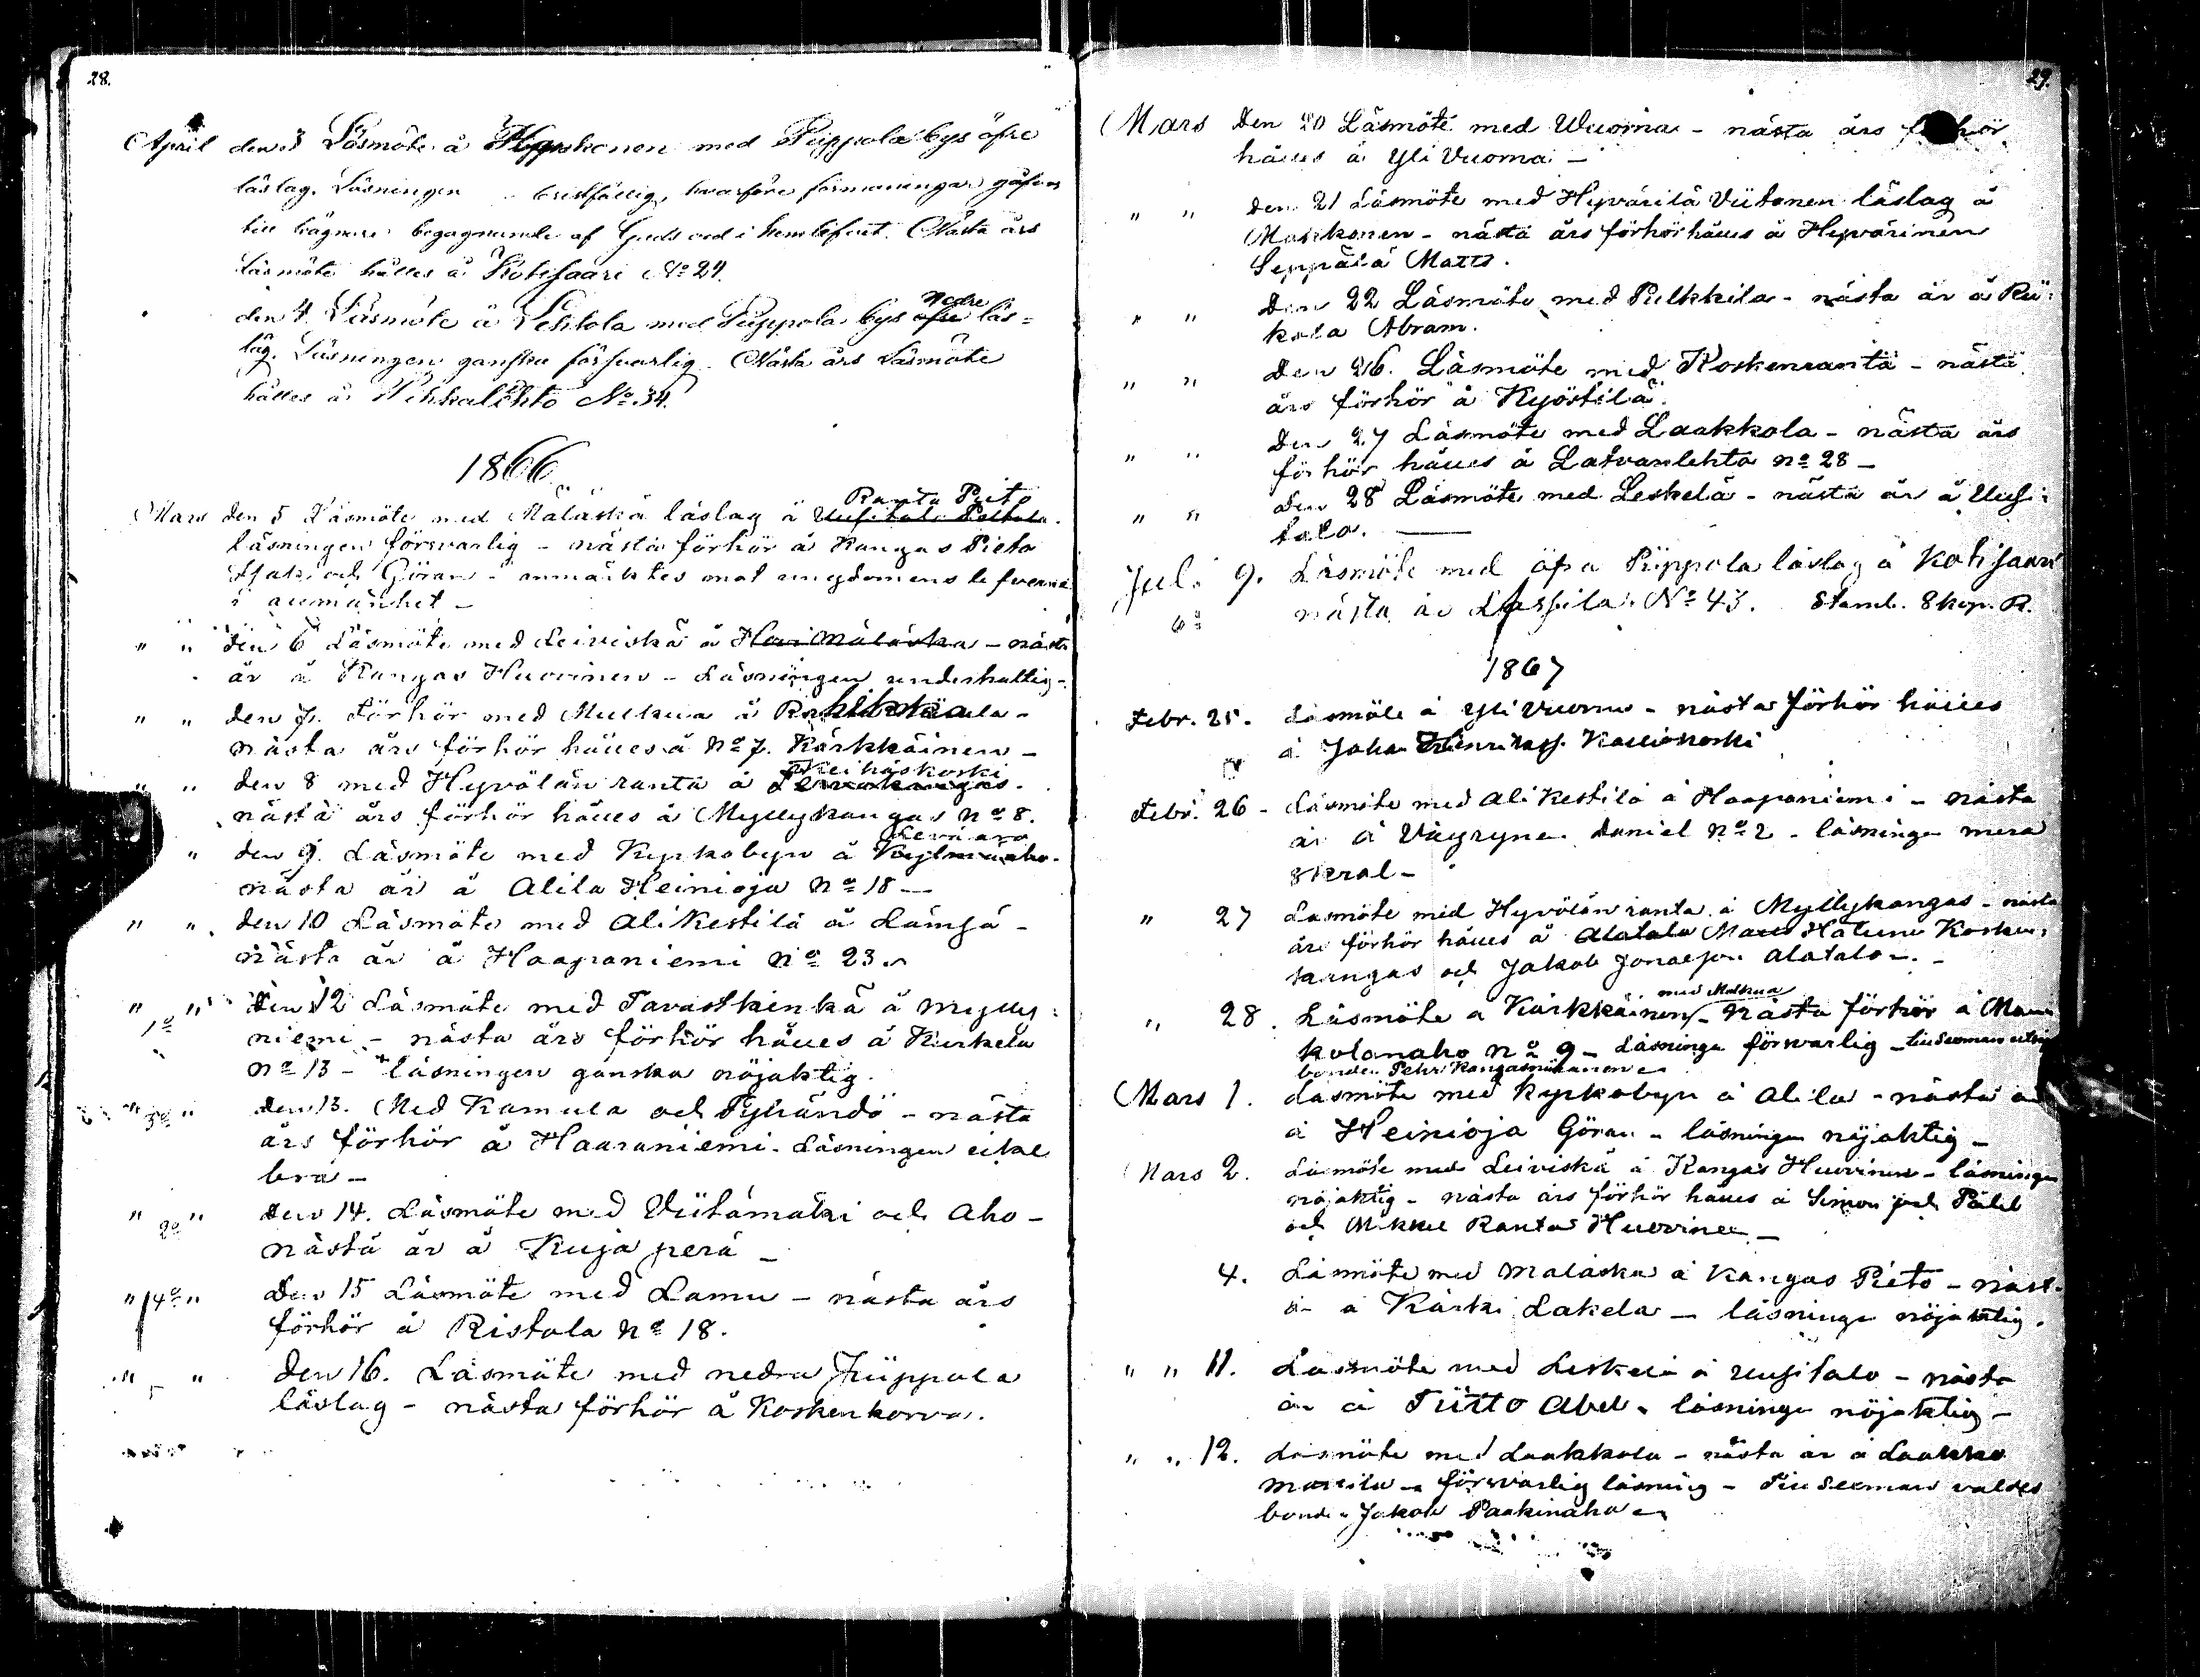 28.
April den 3 Läsmöte å Hyyskonen med Piippola bys öfre
läslag. Läsningen bristfällig, hvarföre förmaningar gåfvos
till trägnare begagnande af Guds ord i hemlifvet. Nästa års
läsmöte hålles å Kotisaari No 24.
den 4 Läsmöte å Lehtola med Piippola bys öfre nedre läs=
lag. Läsningen ganska försvarlig. Nästa års Läsmöte
hålles å Pihkalehto No. 34.
1866
Mars den 5 Läsmöte med Mäläskä läslag å Uusitalo Ranta Pieto
läsningen försvarlig - nästa förhör å Kangas Pieto
Isak och Göran - anmärktes mot ungdomens lefverne
i allmänhet -
" " den 6 Läsmöte med Leiviskä å Hovi Mäläska - nästa
år å Kangas Huovinen - Läsningen underhaltig -
" " den 7. Förhör med Mulkua å
nästa års förhör hålles å No 7. Kärkkäinen -
" " den 8 med Hyvölän ranta å Keihäskoski
nästa års förhör hålles å Myllykangas No 8.
" den 9. Läsmöte med Kyrkobyn å
nästa år å Alila Heinioja No 18 -
" " den 10 Läsmöte med Alikestilä å Lämsä -
nästa år å Haapaniemi No 23.
" 1o " den 12 Läsmöte med Tavastkenkä å Mylly=
niemi - nästa års förhör hålles å Kurkela
No 13 - läsningen ganska nöjaktig.
" 3o " den 13. Med Kamula och Pyhändö - nästa
års förhör å Haaraniemi. Läsningen eikel
bra -
" 2o " den 14. Läsmöte med Viitämäki och Aho -
nästa år å Kuja perä -
" 4o " den 15 Läsmöte med Lamu - nästa års
förhör å Ristola No 18.
" 5 " den 16. Läsmöte med nedra Piippola
läslag - nästa förhör å Koskenkorva.
29.
Mars den 20 Läsmöte med Wuorna - nästa års förhör
hålles å Yli Vuorna -
" " den 21 Läsmöte med Hyvärilä Viitanen läslag å
Markkonen - nästa års förhör hålles å Hyvärinen
Seppälä Matts.
" " den 22 Läsmöte med Pulkkila - nästa år å Rii=
kola Abram.
" " den 26. Läsmöte med Koskenranta - nästa
års förhör å Kyöstilä.
" " den 27 Läsmöte med Laakkola - nästa års
förhör hålles å Latvanlehto No 28 -
" " den 28 Läsmöte med Leskelä - nästa år å Uusi=
talo.
Juli 9. Läsmöte med öfra Piippola läslag å Kotisaari
6o nästa år Lassila No 43. Stamb. 8 kop. R.
1867
Febr. 25. Läsmöte å Yli Vuorna - nästa förhör hålles
å Johan Henriksss. Kalliokoski
Febr. 26 - Läsmöte med Alikestilä å Haapaniemi - nästa
år å Väyrynen Daniel No 2 - läsningen mera
skral -
" 27 Läsmöte med Hyvölän ranta å Myllykangas - nästa
års förhör hålles å Alatalo Koskenkangas
och Jakob Jonasson Alatalo -
" 28. Läsmöte å Kärkkäinen med Mulkua - Nästa förhör å
kolanaho No 9 - Läsningen försvarlig - till sexman
bonden Pehr
Mars 1. Läsmöte med Kyrkobyn å Alila - nästa år
å Heinioja Göran - läsningen nöjaktig -
Mars 2. Läsmöte med Leiviskä å Kangas Huovinen - läsningen
nöjaktig - nästa års förhör hålles å Simon och
och Mikkel Ranta Huovinen -
4. Läsmöte med Mäläskä å Kangas Pieto - nästa
år å Kärki Lakela - läsningen nöjaktig.
" " 11. Läsmöte med Leskelä å Uusitalo - nästa
år å Tiitto Abel - läsningen nöjaktig -
" " 12. Läsmöte med Laakkola - nästa år å Laakko
Mattila - försvarlig läsning - Till Sexman valdes
bonden Jakob Paakinaho